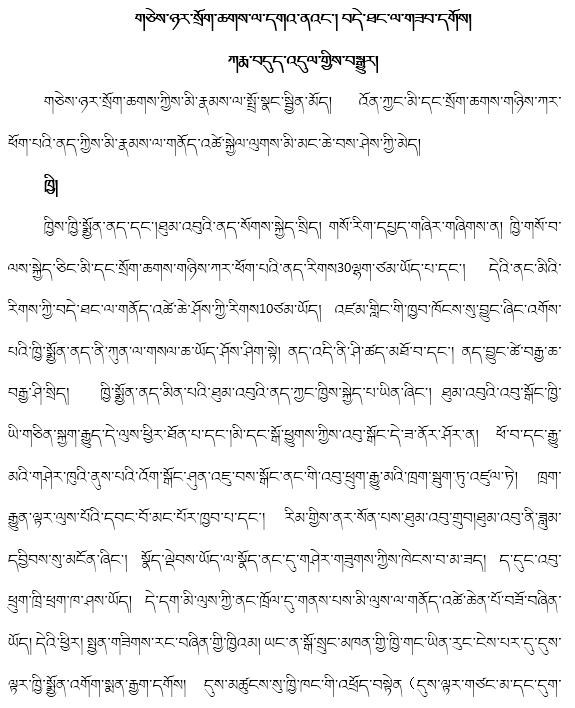 གཅེས་ཉར་སྲོག་ཆགས་ལ་དགའ་ནའང་། བདེ་ཐང་ལ་གཟབ་དགོས།
ཀརྨ་བདུད་འདུལ་གྱིས་བསྒྱུར།
གཅེས་ཉར་སྲོག་ཆགས་ཀྱིས་མི་རྣམས་ལ་སྤྲོ་སྣང་སྦྱིན་མོད། འོན་ཀྱང་མི་དང་སྲོག་ཆགས་གཉིས་ཀར་
ཕོག་པའི་ནད་ཀྱིས་མི་རྣམས་ལ་གནོད་འཚེ་སྐྱེལ་ལུགས་མི་མང་ཆེ་བས་ཤེས་ཀྱི་མེད།
ཁྱི།
ཁྱིས་ཁྱི་སྨྱོན་ནད་དང་།ཐུམ་འབུའི་ནད་སོགས་སྐྱེད་སྲིད། གསོ་རིག་དཔྱད་གཞིར་གཞིགས་ན། ཁྱི་གསོ་བ་
ལས་སྐྱེད་ཅིང་མི་དང་སྲོག་ཆགས་གཉིས་ཀར་ཕོག་པའི་ནད་རིགས30ལྷག་ཙམ་ཡོད་པ་དང་། དེའི་ནང་མིའི་
རིགས་ཀྱི་བདེ་ཐང་ལ་གནོད་འཚེ་ཆེ་ཤོས་ཀྱི་རིགས10ཙམ་ཡོད། འཛམ་གླིང་གི་ཁྱབ་ཁོངས་སུ་བྱུང་ཞིང་འགོས་
པའི་ཁྱི་སྨྱོན་ནད་ནི་ཀུན་ལ་གསལ་ཆ་ཡོད་ཤོས་ཤིག་སྟེ། ནད་འདི་ནི་ཤི་ཚད་མཐོ་བ་དང་། ནད་བྱུང་ཚེ་བརྒྱ་ཆ་
བརྒྱ་ཤི་སྲིད། ཁྱི་སྨྱོན་ནད་མིན་པའི་ཐུམ་འབུའི་ནད་ཀྱང་ཁྱིས་སྐྱེད་པ་ཡིན་ཞིང་། ཐུམ་འབུའི་འབུ་སྒོང་ཁྱི་
ཡི་གཅིན་སྐྱག་རྒྱུད་དེ་ལུས་ཕྱིར་ཐོན་པ་དང་།མི་དང་སྒོ་ཕྱུགས་ཀྱིས་འབུ་སྒོང་དེ་ཟ་ནོར་ཤོར་ན། ཕོ་བ་དང་རྒྱུ་
མའི་གཤེར་ཁུའི་ནུས་པའི་འོག་སྒོང་ཤུན་འཇུ་བས་སྒོང་ནང་གི་འབུ་ཕྲུག་རྒྱུ་མའི་ཁྲག་སྦུག་ཏུ་འཛུལ་ཏེ། ཁྲག་
རྒྱུན་ལྟར་ལུས་པོའི་དབང་པོ་མང་པོར་ཁྱབ་པ་དང་། རིམ་གྱིས་ནར་སོན་པས་ཐུམ་འབུ་གྲུབ།ཐུམ་འབུ་ནི་ཟླུམ་
དབྱིབས་སུ་མངོན་ཞིང་། སྣོད་ལྡེབས་ཡོད་ལ་སྣོད་ནང་དུ་གཤེར་གཟུགས་ཀྱིས་ཁེངས་བ་མ་ཟད། ད་དུང་འབུ་
ཕྲུག་ཁྲི་ཕྲག་ཁ་ཤས་ཡོད། དེ་དག་མི་ལུས་ཀྱི་ནང་ཁྲོལ་དུ་གནས་པས་མི་ལུས་ལ་གནོད་འཚེ་ཆེན་པོ་བཟོ་བཞིན་
ཡོད། དེའི་ཕྱིར། སྤྱན་གཟིགས་རང་བཞིན་གྱི་ཁྱིའམ། ཡང་ན་སྒོ་སྲུང་མཁན་གྱི་ཁྱི་གང་ཡིན་རུང་ངེས་པར་དུ་དུས་
ལྟར་ཁྱི་སྨྱོན་འགོག་སྨན་རྒྱག་དགོས། དུས་མཚུངས་སུ་ཁྱི་ཁང་གི་འཕྲོད་བསྟེན (དུས་ལྟར་གཙང་མ་དང་དུག་